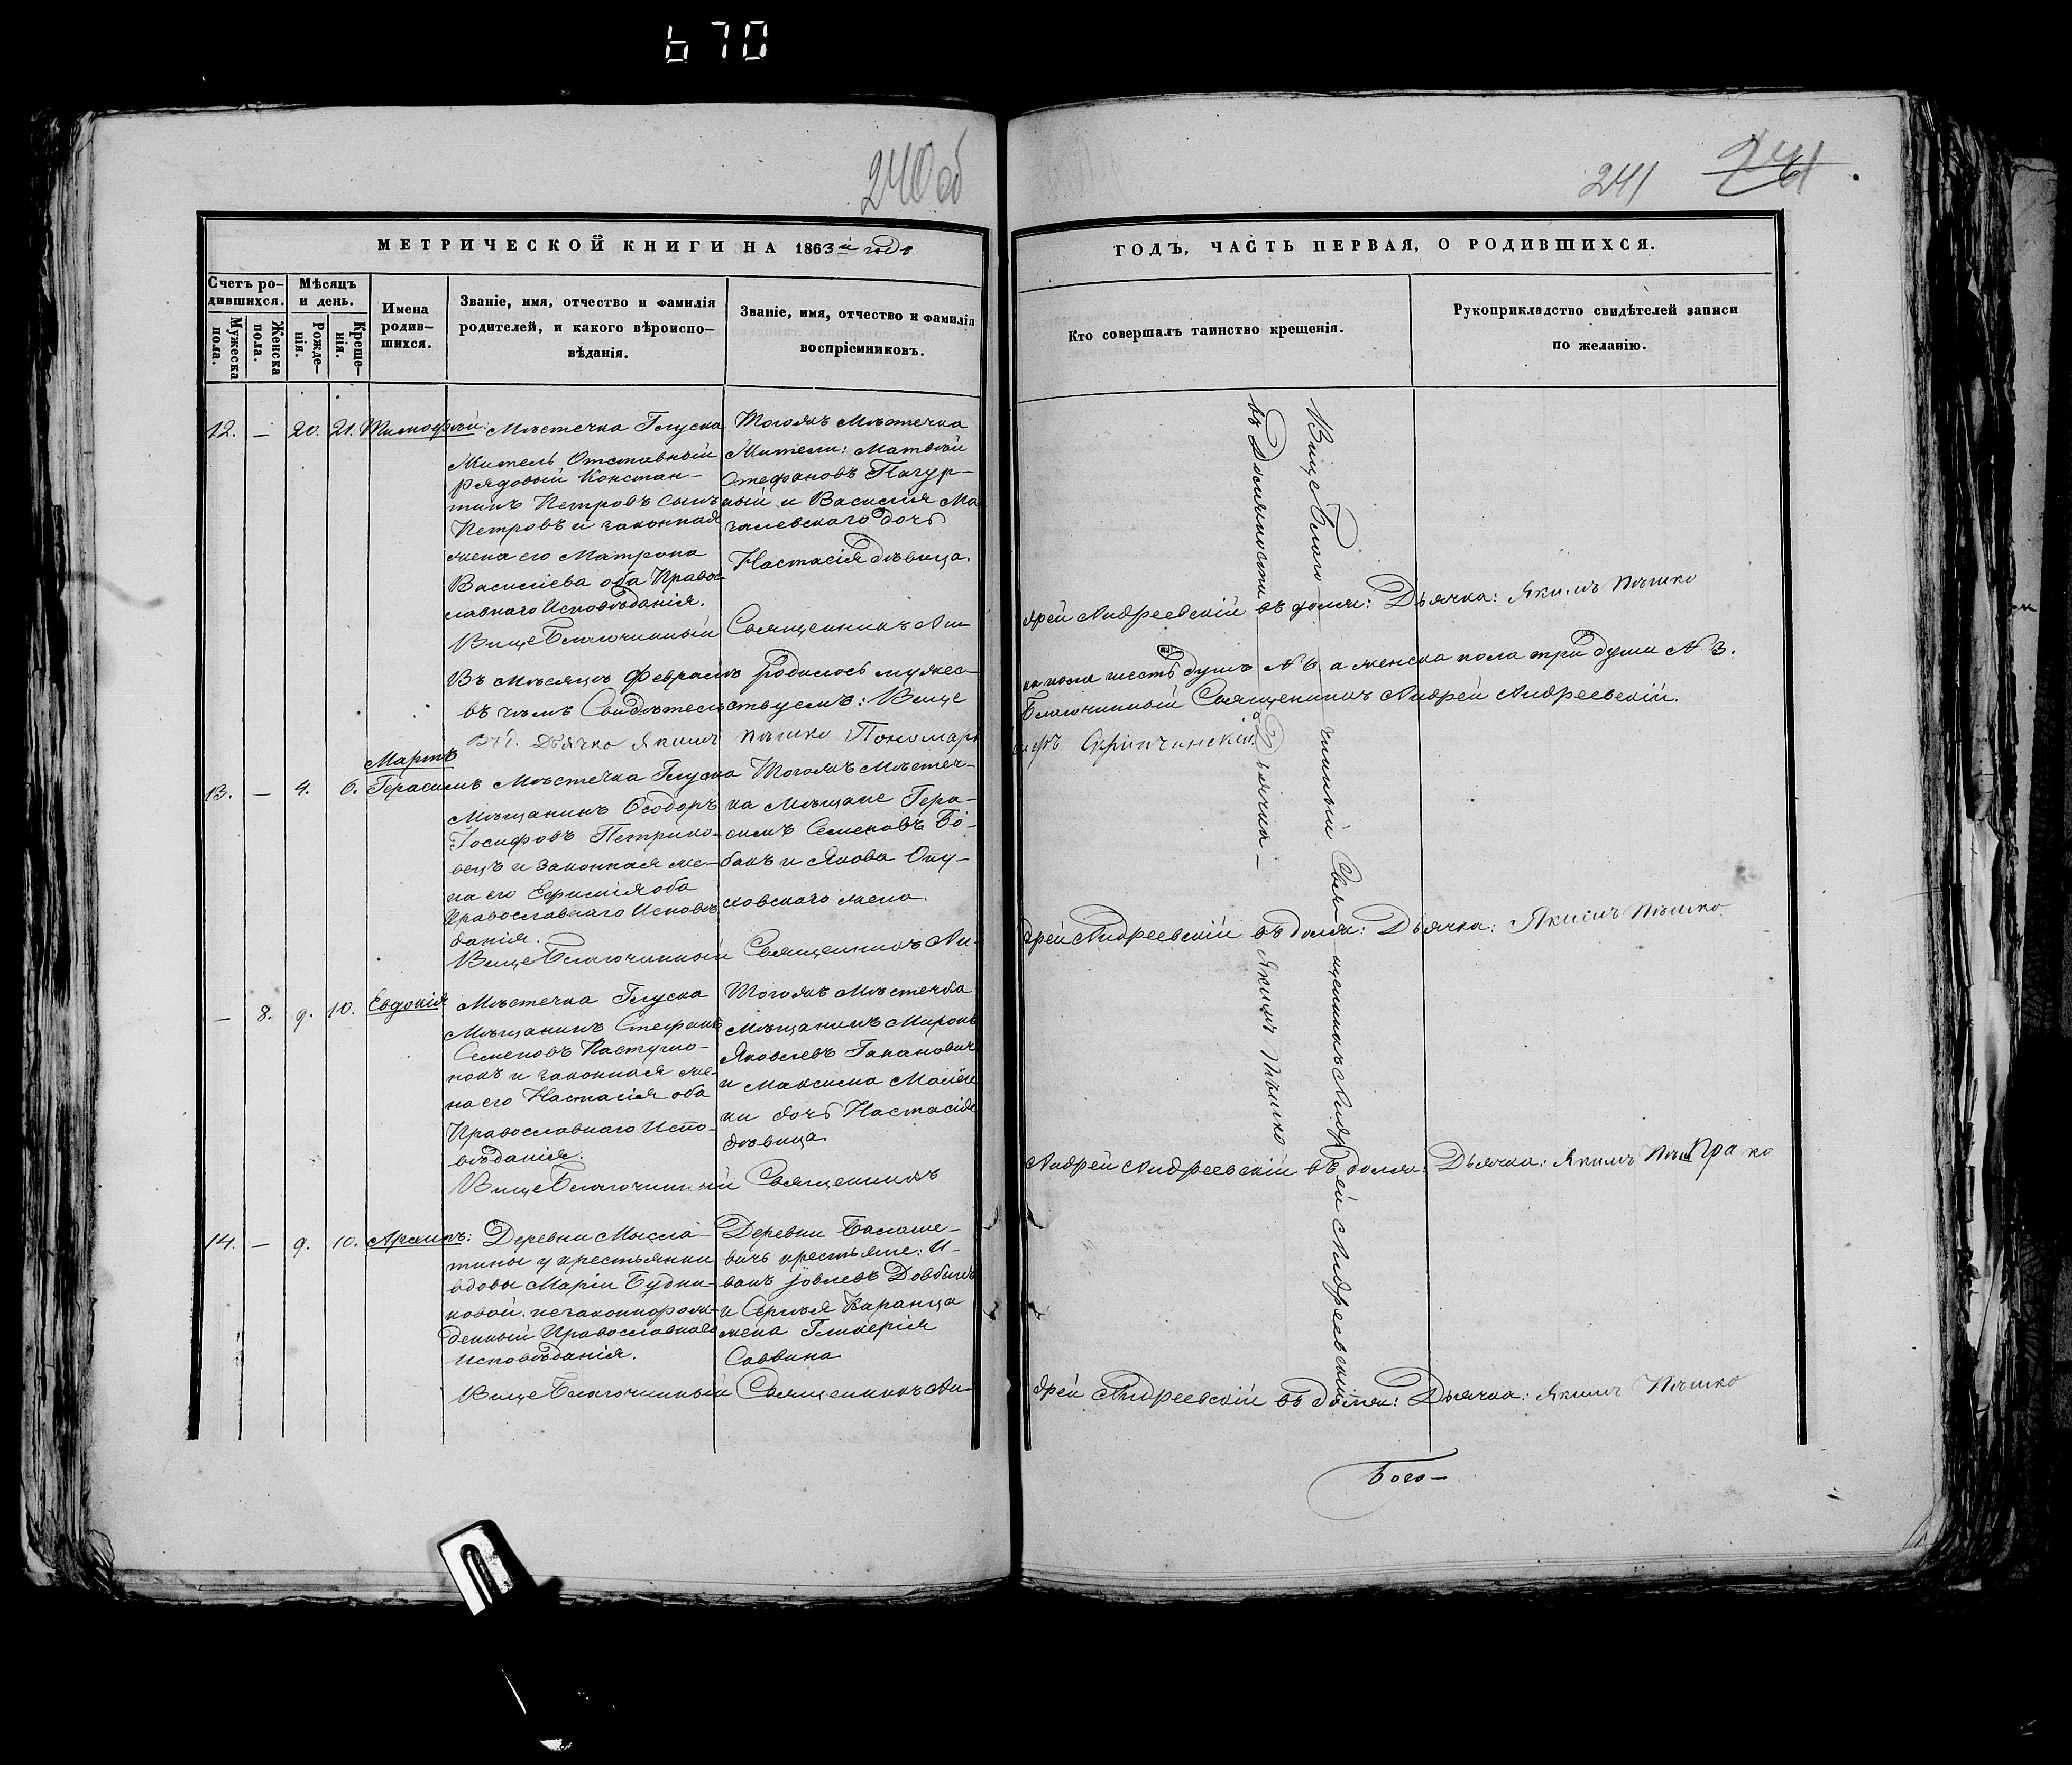 670
240 об
241
241
МЕТРИЧЕСКОЙ КНИГИ НА 1863й годъ
ГОДЪ, ЧАСТЬ ПЕРВАЯ, О РОДИВШИХСЯ.
Счетъ ро-
дившихся.
Мужеска
пола.
Женска
пола.
Мѣсяцъ
и день.
Рожде-
нія.
Креще-
нія.
Имена
родив-
шихся.
Званіе, имя, отчество и фамилія
родителей, и какого вѣроиспо-
вѣданія.
Званіе, имя, отчество и фамилія
воспріемниковъ.
Кто совершалъ таинство крещенія.
Рукоприкладство свидѣтелей записи
по желанію.
12. — 20. 21. Тимофѣй:
Мѣстечка Глуска
Житель Отставный
рядовый Констан-
тинъ Петровъ сынъ
Петровъ и законная
жена его Матрона
Василіева оба Право-
славнаго Исповѣданія.
Тогожъ Мѣстечка
Жители: Матвѣй
Стефановъ
ный и Василія
дочь
Настасія дѣвица.
Вице Благочинный Священникъ Ан-
дрей Андреевскій въ домѣ: Дьячка: Якимъ Пѣшко
Въ мѣсяцѣ Февралѣ родилось мужес-
ка пола шесть душъ № 6. а женска пола три души № 3.
въ чемъ Свидѣтельствуемъ: Вице
Благочинный Священникъ Андрей Андреевскій.
Дьячка Якимъ Пѣшко Пономарь
Скрипчинскій.
Мартъ
13. — 4. 6. Герасимъ
Мѣстечка Глуска
Мѣщанинъ Ѳеодоръ
Іосифовъ Петрико-
вецъ и законная же-
на его Ефимія оба
Православнаго Исповѣ-
данія.
Тогожъ Мѣстеч-
ка Мѣщане Гера-
симъ Семеновъ Бо-
бакъ и Якова Опу-
ховскаго жена.
Вице Благочинный Священникъ Ан-
дрей Андреевскій въ домѣ: Дьячка: Якимъ Пѣшко
— 8. 9. 10. Евдокія
Мѣстечка Глуска
Мѣщанинъ Стефанъ
Семеновъ Пастушо-
нокъ и законная же-
на его Настасія оба
Православнаго Испо-
вѣданія.
Тогожъ Мѣстечка
Мѣщанинъ Миронъ
Яковлевъ Гаханович
и Максима
ки дочь Настасія
дѣвица.
Вице Благочинный Священникъ
Андрей Андреевскій въ домѣ: Дьячка: Якимъ Пѣшко
14. — 9. 10. Архипъ:
Деревни Мысло-
тины у крестьянки
вдовы Маріи Будни-
ковой. незаконнорож-
денный Православнаго
Исповѣданія.
Деревни Балаше-
вичъ крестьяне: И-
ванъ Іовлевъ Довбышъ
и Сергѣя Каранца
жена Гликерія
Саввина
Вице Благочинный Священникъ Ан-
дрей Андреевскій въ домѣ: Дьячка: Якимъ Пѣшко
Вице Благочинный Священникъ Андрей Андреевскій
въ Должности Дьячка — Якимъ Пѣшко
Бого-